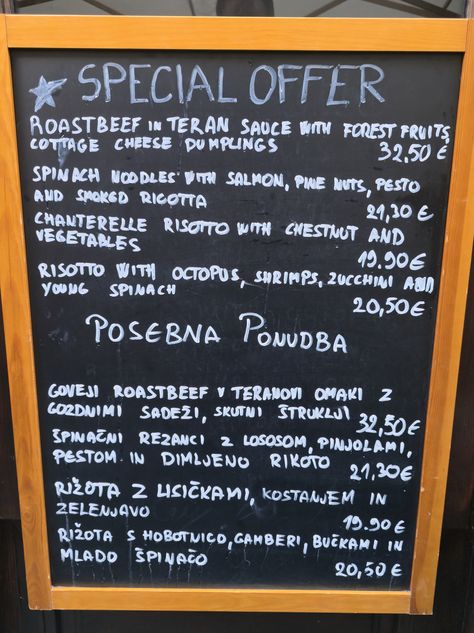 SPECIAL OFFER
ROASTBEEF IN TERAN SAUCE WITH FOREST FRUITS,
COTTAGE CHEESE DUMPLINGS 32,50 €
SPINACH NOODLES WITH SALMON, PINE NUTS, PESTO
AND SMOKED RICOTTA 21,30 €
CHANTERELLE RISOTTO WITH CHESTNUT AND
VEGETABLES 19.90 €
RISOTTO WITH OCTOPUS, SHRIMPS, ZUCCHINI AND
YOUNG SPINACH 20,50 €
POSEBNA PONUDBA
GOVEJI ROASTBEEF V TERANOVI OMAKI Z
GOZDNIMI SADEŽI, SKUTNI ŠTRUKLJI 32,50 €
ŠPINAČNI REZANCI Z LOSOSOM, PINJOLAMI,
PESTOM IN DIMLJENO RIKOTO 21,30 €
RIŽOTA Z LISIČKAMI, KOSTANJEM IN
ZELENJAVO 19.90 €
RIŽOTA S HOBOTNICO, GAMBERI, BUČKAMI IN
MLADO ŠPINAČO 20,50 €